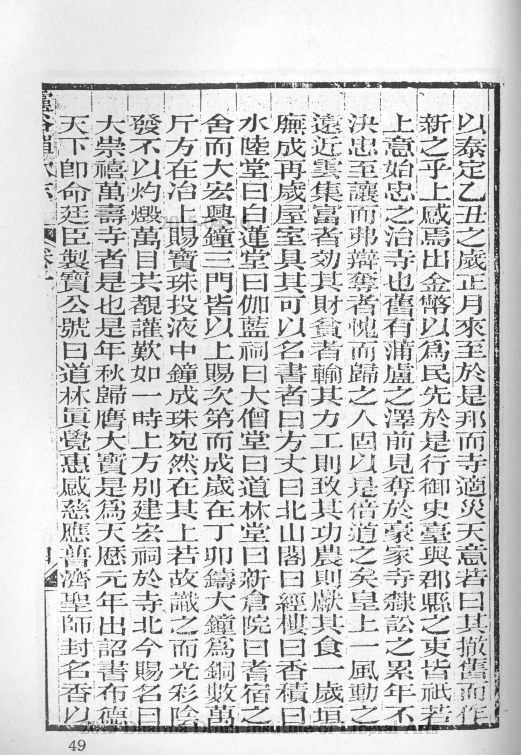 以泰定乙丑之歲正月來至於是那而寺適災天意若曰其撤舊而作
新之乎上感焉出金幣以爲民先於是行御史臺與郡縣之吏皆祇若
上意始忠之治寺也舊有蒲盧之澤前見奪於豪家寺隸訟之累年不
決忠至讓而弗辯奪者愧而歸之人固以是信道之矣皇上一風動之
遠近雲集富者効其財貧者輸其力工則致其功農則獻其食一歲垣
廡成再歲屋室具其可以名書者曰方丈曰北山閣曰經樓曰香積曰
水陸堂曰白蓮堂曰伽藍祠曰大僧堂曰道林堂曰新倉院曰耆宿之
舍而大宏興鐘三門皆以上賜次第而成歲在丁卯鑄大鐘爲銅數萬
斤方在冶上賜寶珠投液中鐘成珠宛然在其上若故識之而光彩陰
發不以灼燬萬目共覩讙歎如一時上方別建宏祠於寺北今賜名曰
大崇禧萬壽寺者是也是年秋歸膺大寶是爲天歷元年出詔書布德
天下卽命廷臣製寶公號曰道林眞覺惠感慈應普濟聖師封名香以
卷十
49